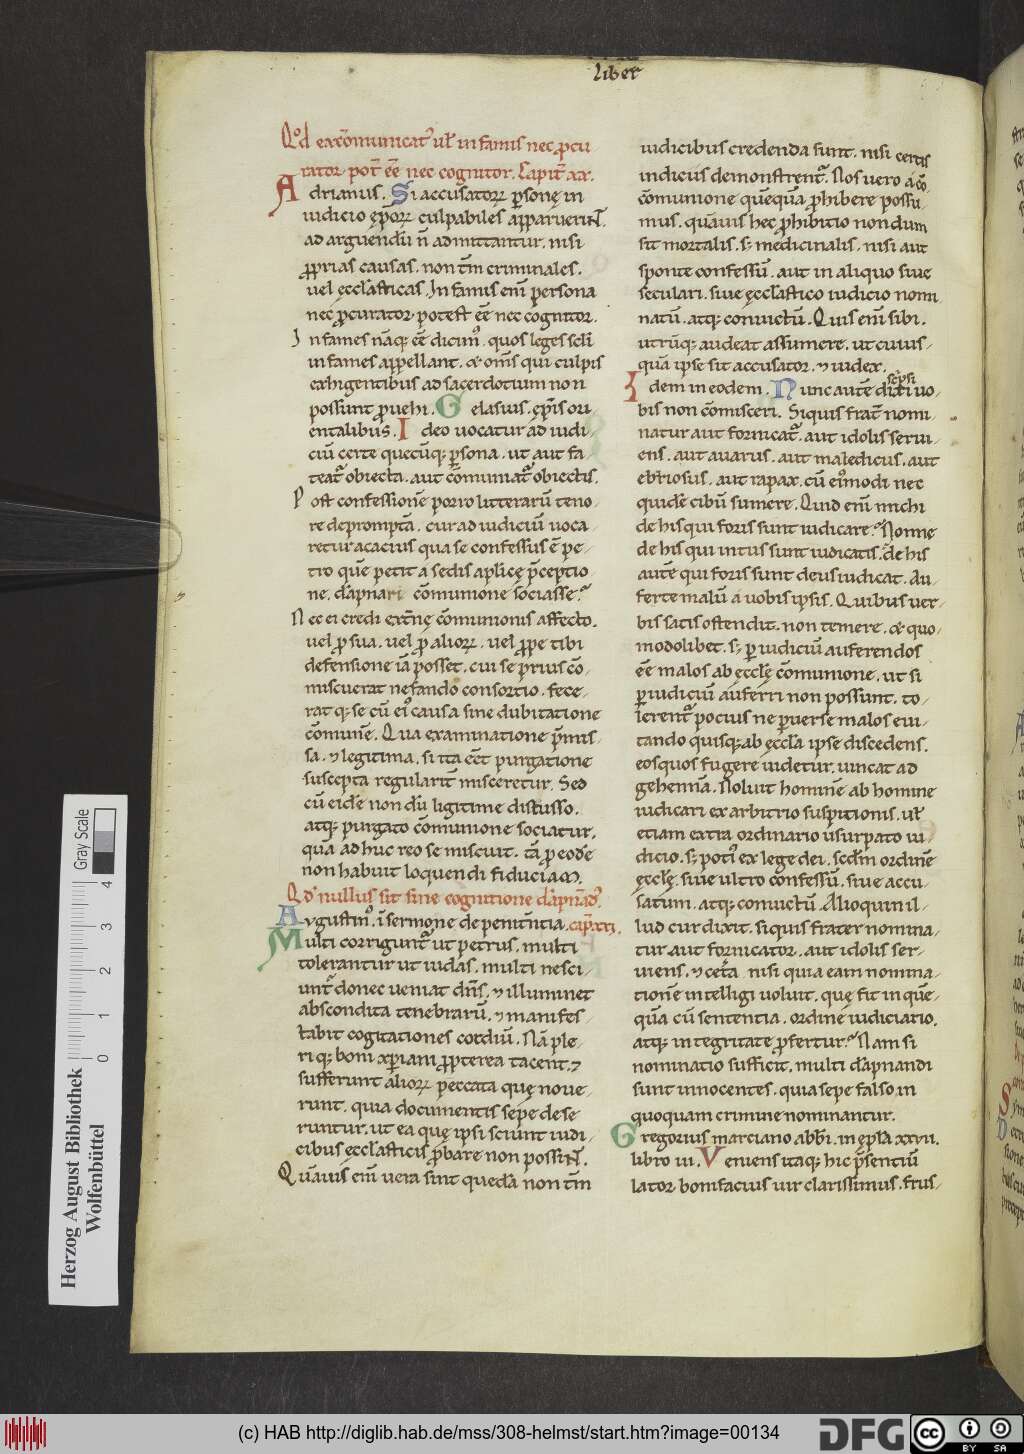 liber
Qd̕ excōmunicat᷒ ul̕ infamis nec ꝓcu
rator pot̄ eē nec cognitor. Capit̄ xx.
Adrianus. Si accusatoꝝ ꝑsonę in
iudicio ep̄oꝝ culpabiles apparuerint̄.
ad arguendū n̄ admittantur. nisi
ꝓprias causas. non tm̄ criminales.
uel ęccl̄asticas. Infamis eni᷒ persona
nec ꝓcurator potest eē nec cognitor.
Infames nāq; eē dicim᷒. quos leges scl̄i
infames appellant. & om̄s qui culpis
exhigentibus ad sacerdotium non
possunt ꝓuehi. Gelasius. ep̄is ori
entalibus. Ideo uocatur ad iudi-
ciū certe quecūq; ꝑsona. ut aut fa-
teat᷒ obiecta. aut cōmuniat᷒ obiectis.
Post confessionē porro litterarū teno-
re depromptā. cur ad iudiciū uoca-
retur acacius qua se confessus ē pe-
tro quē petit a sedis aplicę p̄ceptio-
ne. dāpnari cōmunione sociasse?
Nec ei credi ext̄nę cōmunionis affecto.
uel ꝓ sua. uel ꝓ alioꝝ. uel ꝓpe tibi
defensione iā posset. cui se prius cō-
miscuerat nefando consortio. fece-
rat q; se cū ei᷒ causa sine dubitatione
cōmunē. Qua examinatione p̄mis-
sa. ⁊ legitima. si ita eēt purgatione
suscepta regularit̄ misceretur. Sed
cū eidē non dū ligitime discusso.
atq; purgato cōmunione sociatur.
quā ad huc reo se miscuit. tā ꝓ eodē
non habuit loquendi fiduciam.
Qd̕ nullus sit sine cognitione dāpnād᷒.
Augustin᷒. ī sermone de penitn̄tia. cap̄. xxi.
Multi corrigunt᷒ ut petrus. multi
tolerantur ut iudas. multi nesci-
unt᷒ donec ueniat dn̄s. ⁊ illuminet
abscondita tenebrarū. ⁊ manifes-
tabit cogitationes cordiū. Nā ple-
ri q; boni xp̄iani ꝓpterea tacent. ⁊
sufferunt alioꝝ peccata quę noue-
runt. quia documentis sepe dese-
runtur. ut ea quę ipsi sciunt iudi-
cibus ęccl̄asticis ꝓbare non possint̄.
Quāuis eni᷒ uera sint quedā non tm̄
iudicibus credenda sunt. nisi certis
indicius demonstrent᷒. Nos uero a cō
cōmunione quēquā ꝓhibere possu-
mus. quāuis hec ꝓhibitio nondum
sit mortalis. s; medicinalis. nisi aut
sponte confessū. aut in aliquo siue
seculari. siue ęccl̄astico iudicio nomi
natū. atq; conuictū. Quis eni᷒ sibi.
utrūq; audeat assumere. ut cuius-
quā ipse sit accusator. ⁊ iudex.
Idem in eodem. Nunc autē scripsi dixi uo-
bis non cōmisceri. Siquis frat̄ nomi-
natur aut fornicat᷒. aut idolis serui-
ens. aut auarus. aut maledicus. aut
ebriosus. aut rapax. cū ei᷒modi nec
quidē cibū sumere. Quid eni᷒ michi
de his qui foris sunt iudicare? Nonne
de his qui intus sunt iudicatis. de his
autē qui foris sunt deus iudicat. Au-
ferte malū a uobis ipsis. Quibus uer-
bis satis ostendit. non temere. & quo-
modolibet. s; ꝑ iudiciū auferendos
eē malos ab ęccl̄ę cōmunione. ut si
ꝑ iudiciū auferri non possunt. to-
lerent᷒ pocius ne ꝑuerse malos eui-
tando quisq; ab ęccl̄a ipse discedens.
eos quos fugere uidetur. uincat ad
gehennā. Noluit hominē ab homine
iudicari ex arbitrio suspitionis. ul̕
etiam extra ordinario usurpato iu-
dicio. s; poti᷒ ex lege dei. scdm̄ ordinē
ęccl̄ę. siue ultro confessū. siue accu-
satum. atq; conuictū. Alioquin il-
lud cur dixit. siquis frater nomina-
tur aut fornicator. aut idolis ser-
uiens. ⁊ cet̄a. nisi quia eam nomina-
tionē intelligi uoluit. quę fit in quē-
quā cū sententia. ordine iudiciario.
atq; integritate ꝓfertur? Nam si
nominatio sufficit. multi dāpnandi
sunt innocentes. quia sepe falso in
quoquam crimine nominantur.
Gregorius marciano abb̄i. in ep̄la xxvii.
libro iii. Veniens itaq; hic p̄sentiū
lator bonifacius uir clarissimus. frus-
Gray Scale
0 1 2 3 4
Herzog August Bibliothek
Wolfenbüttel
(c) HAB http://diglib.hab.de/mss/308-helmst/start.htm?image=00134
DFG
cc BY SA